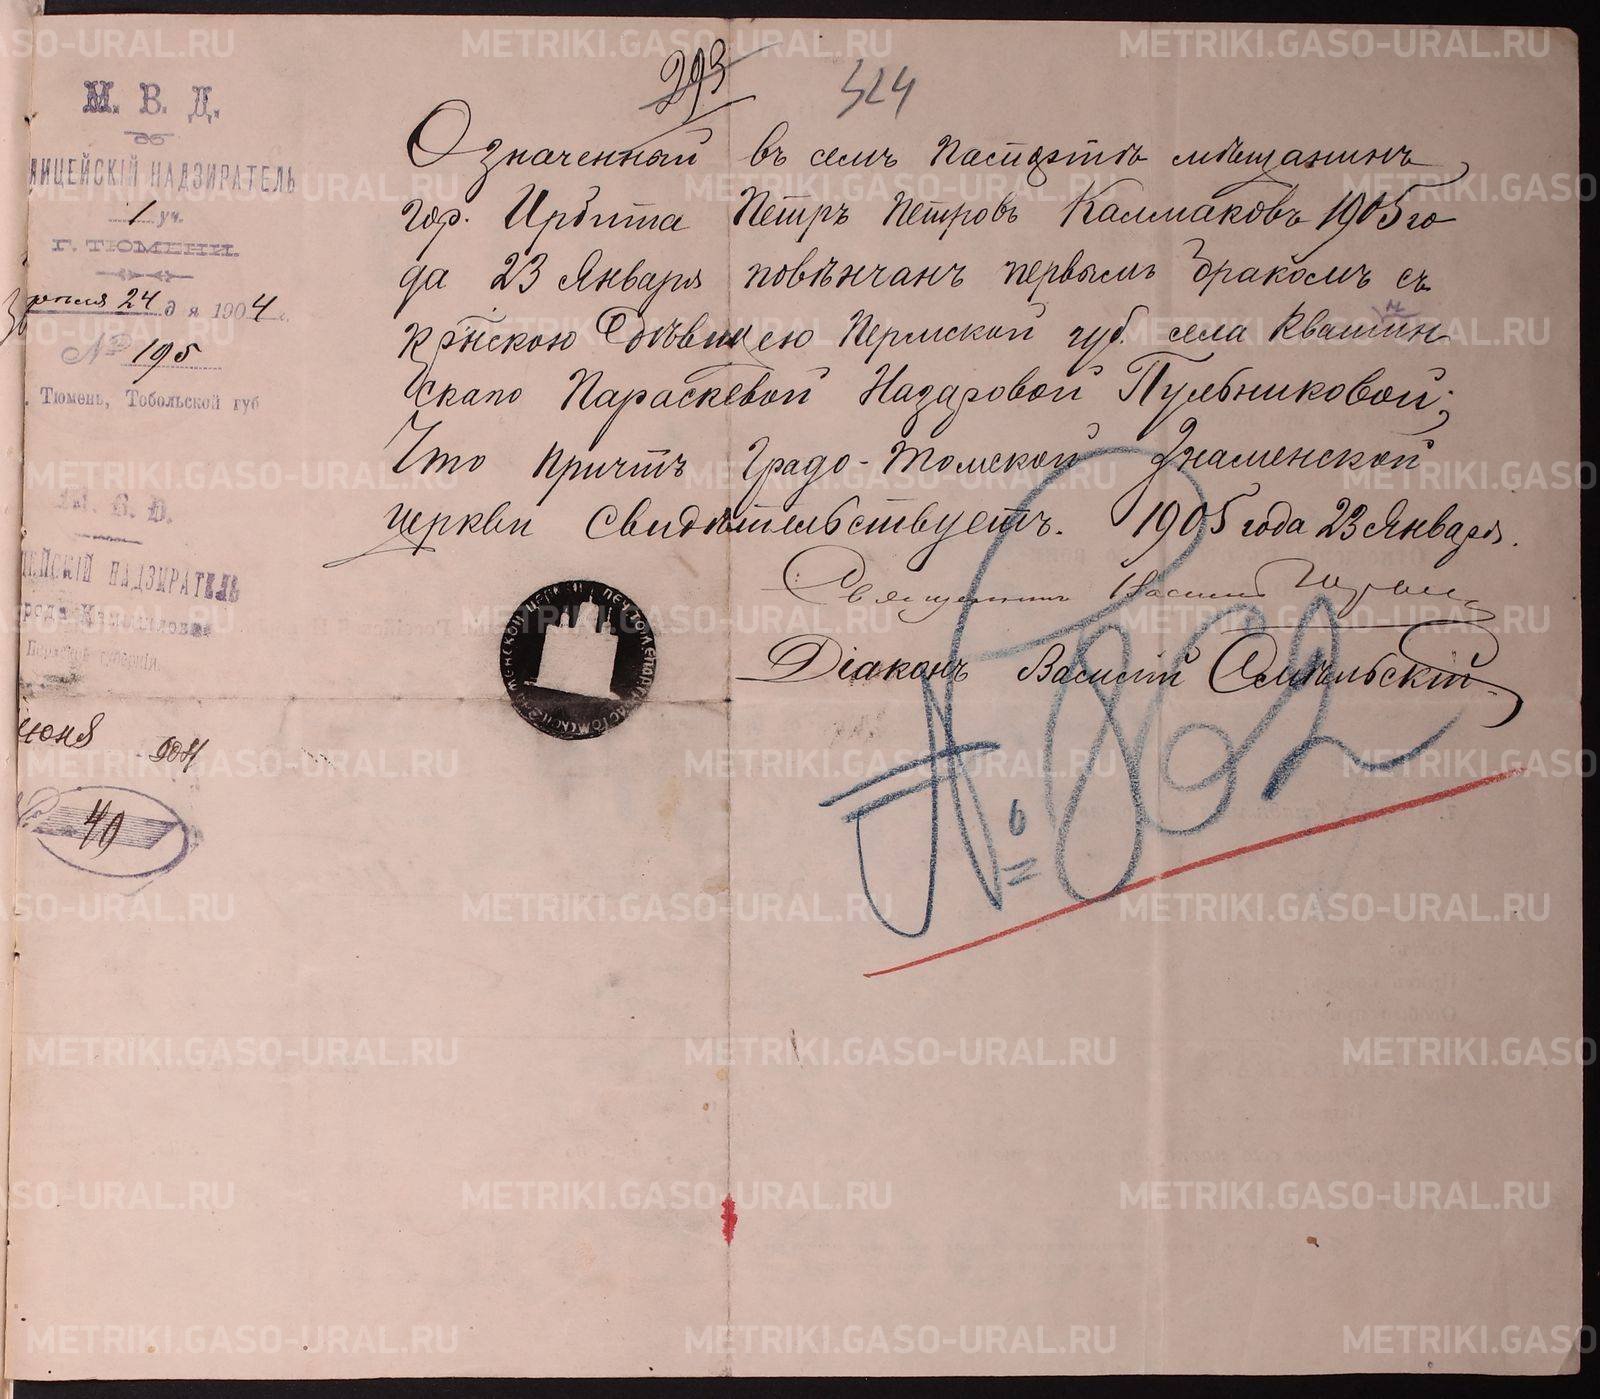 293
324
М. В. Д.
ЛИЦЕЙСКІЙ НАДЗИРАТЕЛЬ
1 уч.
Г. ТЮМЕНИ.
24 д я 1904 г.
№ 195
г. Тюмень, Тобольской губ
М. В. Д.
ЕЙСКІЙ НАДЗИРАТЕЛЬ
Пермской губерніи.
юня 904
№ 49
Означенный въ семъ паспортѣ мѣщанинъ
гор. Ирбита Петръ Петровъ Калмаковъ 1905 го
да 23 Января повѣнчанъ первымъ бракомъ съ
кр-нскою дѣвицею Пермской губ. села Квашнин
скаго Параскевой Назаровой Пульниковой;
Что причтъ Градо-Томской Знаменской
церкви свидѣтельствуетъ. 1905 года 23 Января.
Священникъ Василій
Діаконъ Василій
№ 862
METRIKI.GASO-URAL.RU